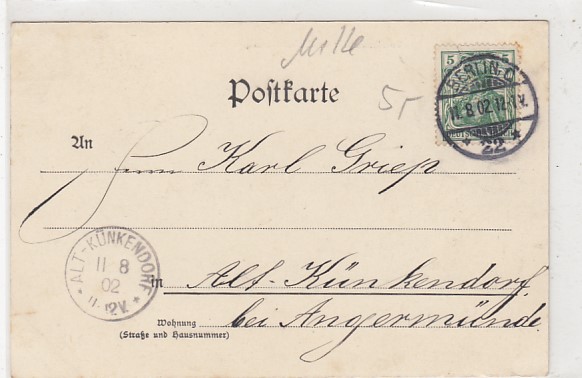 Postkarte
5
5
BERLIN.C.
11.8.02.12-1V.
* 22 *
An
Herrn Karl Griep
ALT-KÜNKENDORF
11 8
02
11-12V.
in
Alt-Künkendorf
bei Angermünde.
Wohnung
(Straße und Hausnummer)